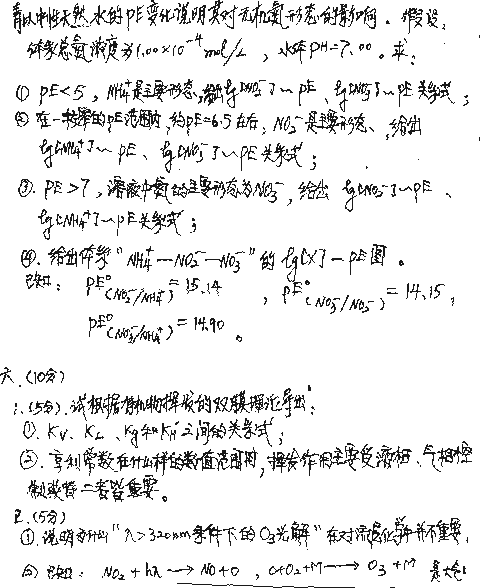 以中性天然水的PE变化说明其对无机氮形态的影响。假设
体系总氮浓度为1.00×10⁻⁴mol/L，水体PH=7.00。求：
① PE<5，NH₄⁺是主要形态，给出lg[NO₂⁻]~PE、lg[NO₃⁻]~PE关系式；
② 在一较窄的PE范围内，约PE=6.5左右，NO₂⁻是主要形态、给出
lg[NH₄⁺]~PE、lg[NO₃⁻]~PE关系式；
③. PE>7，溶液中氮的主要形态为NO₃⁻，给出 lg[NO₂⁻]~PE、
lg[NH₄⁺]~PE关系式；
④. 给出体系“NH₄⁺—NO₂⁻—NO₃⁻”的lg[X]-PE图。
已知：PE⁰(NO₂⁻/NH₄⁺)=15.14，PE⁰(NO₃⁻/NO₂⁻)=14.15，
PE⁰(NO₃⁻/NH₄⁺)=14.90。
六.(10分)
1.(5分).试根据有机物挥发的双膜理论导出：
①.Kv、KL、Kg和KH'之间的关系式；
②.亨利常数在什么样的数值范围时，挥发作用主要受液相、气相控
制或者二者皆重要。
2.(5分)
①.说明为什么“λ>320nm条件下的O₃光解”在对流层化学中并不重要
② 已知：NO₂+hλ→NO+O，O+O₂+M→O₃+M